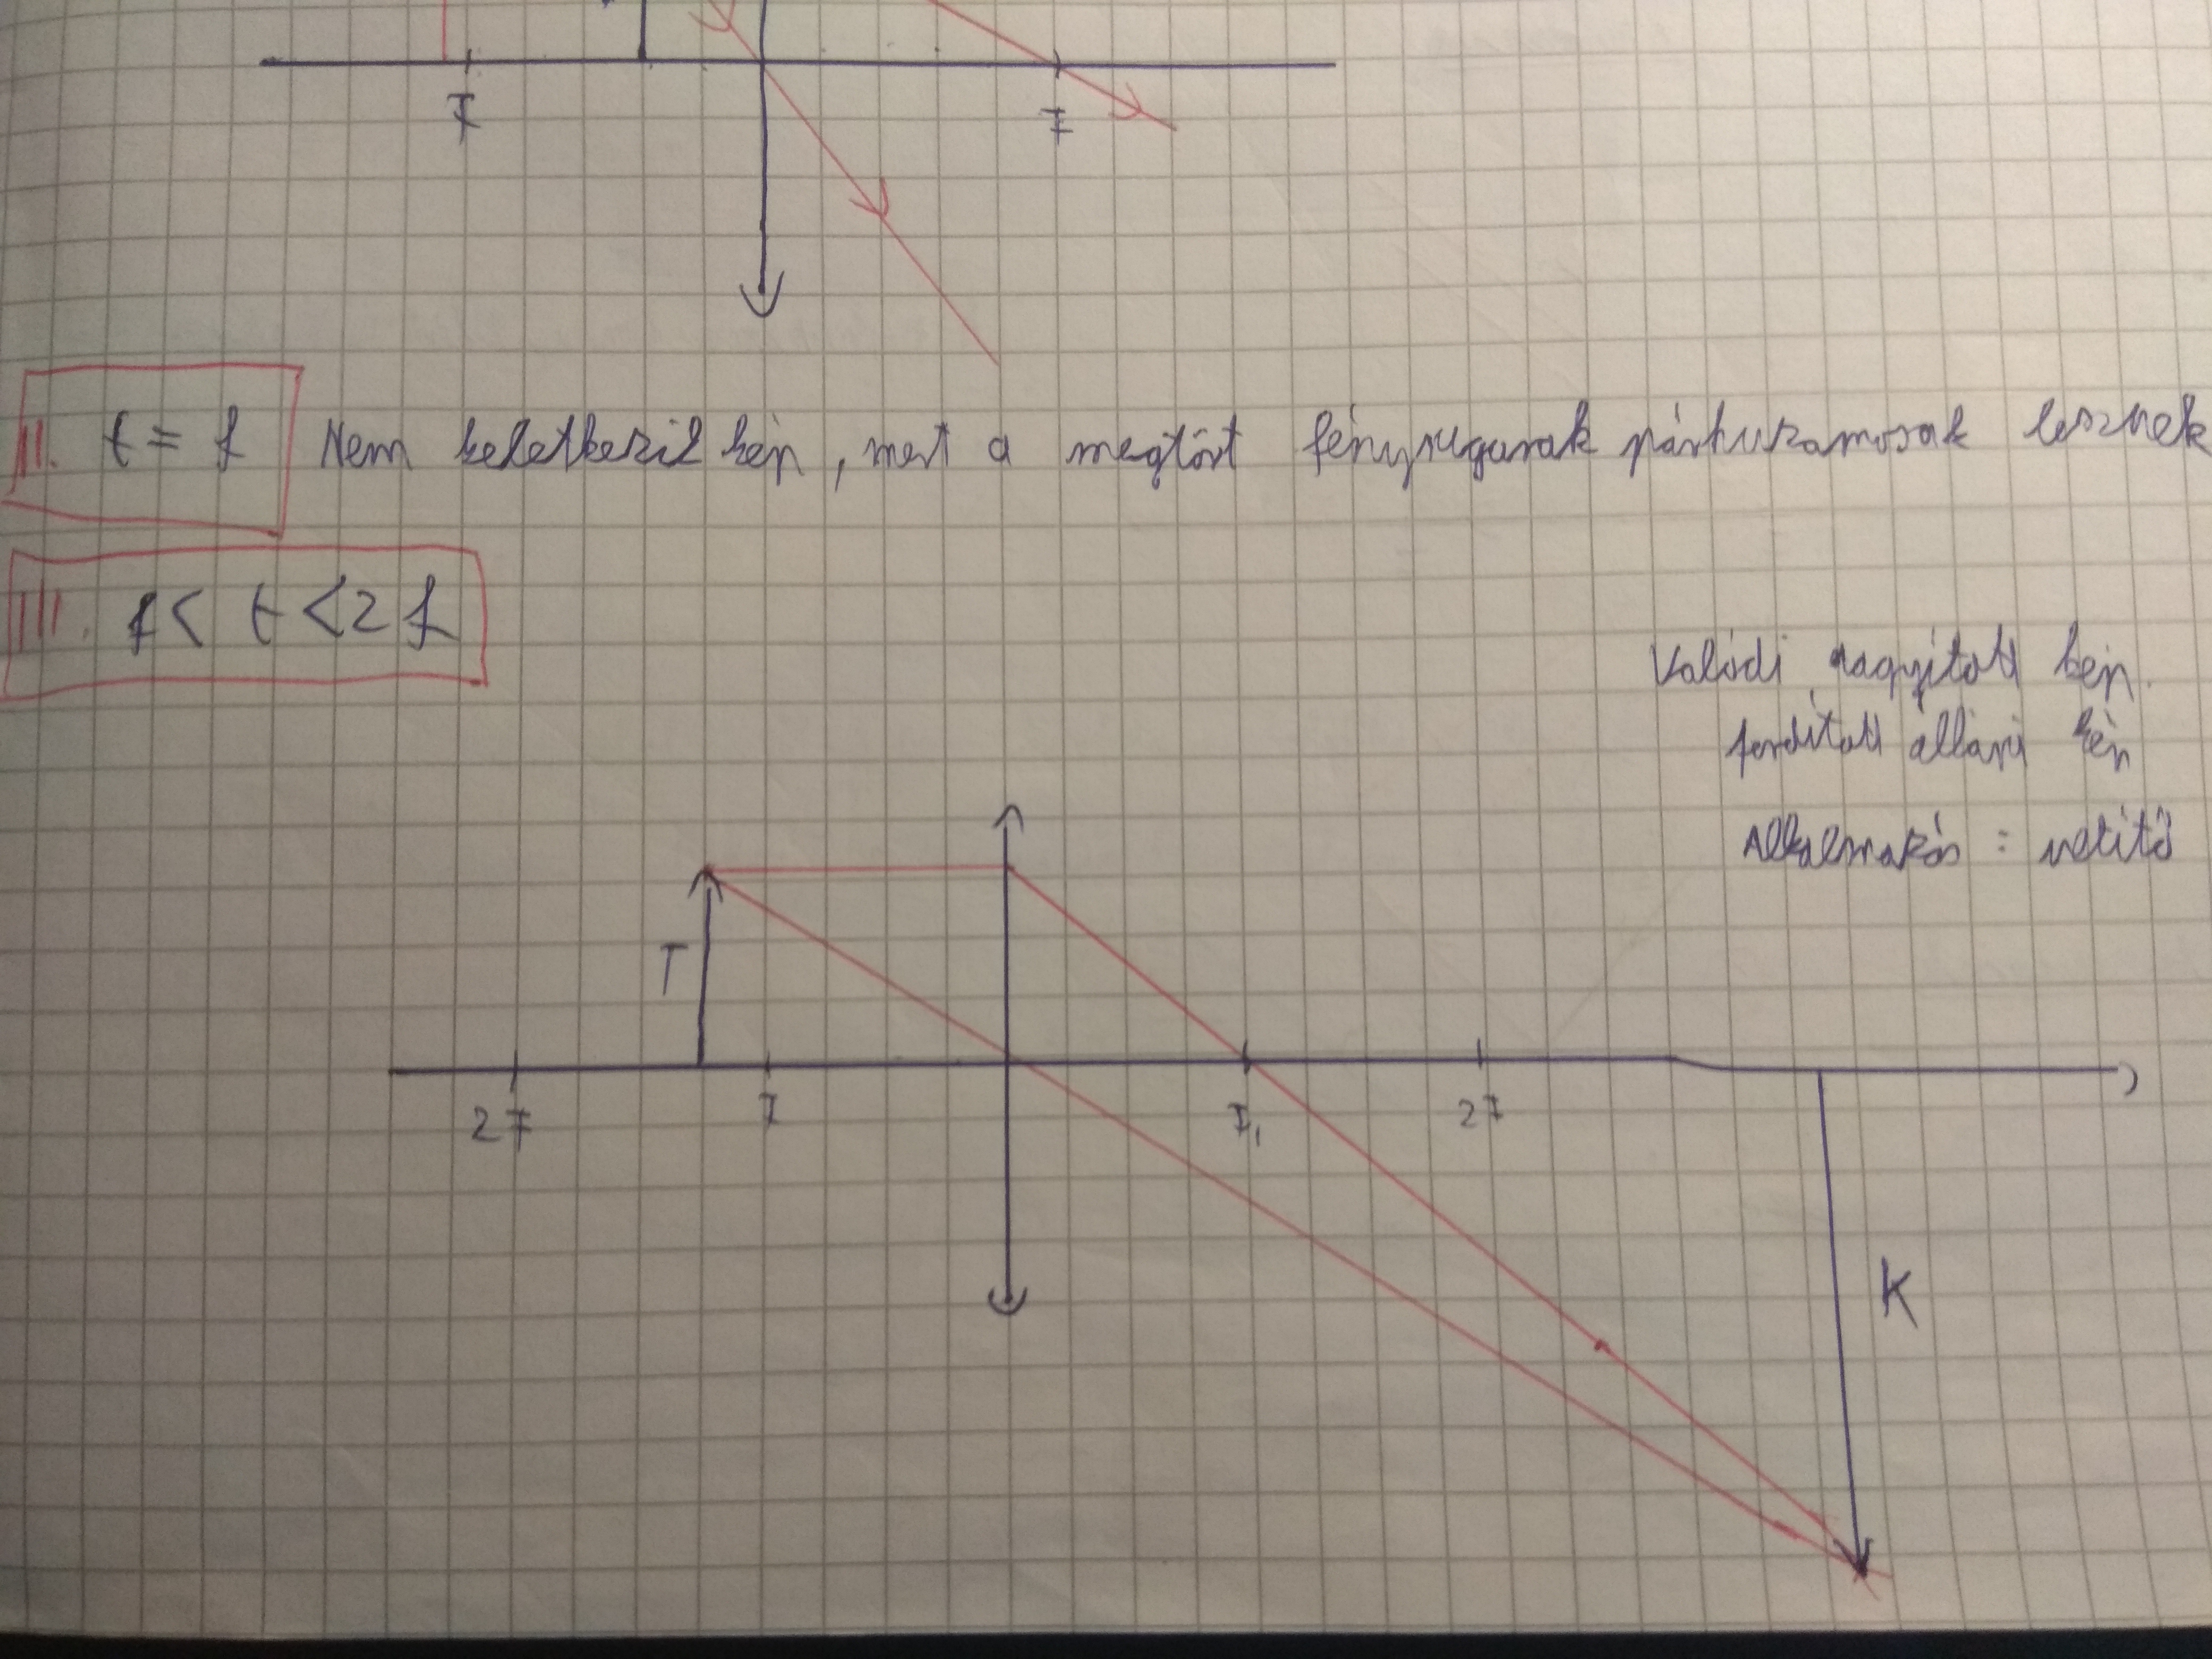 F F
II. t = f Nem keletkezik kép, mert a megtört fénysugarak párhuzamosak lesznek
III. f < t < 2 f
Valódi, nagyított kép.
fordított állású kép
Alkalmazás : vetítő
T
2F F F₁ 2F
K